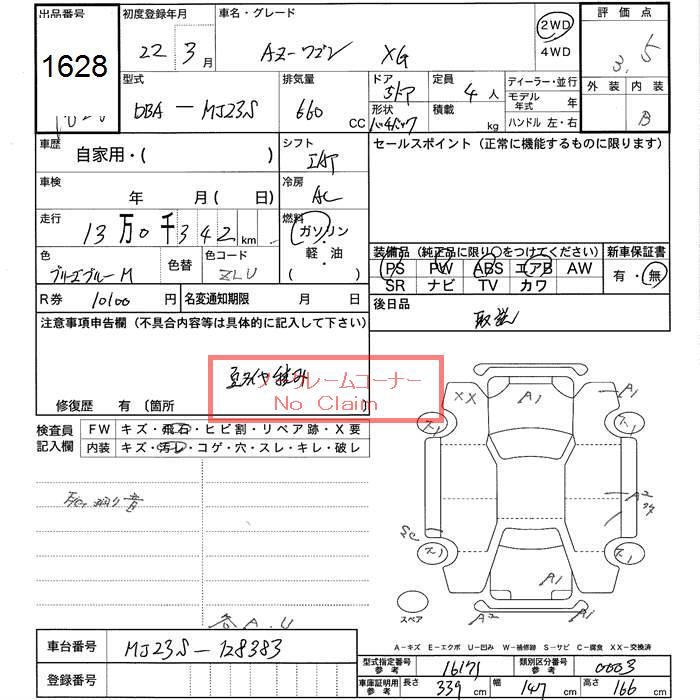 出品番号 初度登録年月 車名・グレード 評価点
1628 22年3月 AZ-ワゴン XG 2WD 4WD 3.5
型式 排気量 ドア 定員 ディーラー・並行 外装 内装
DBA-MJ23S 660 CC 5ドア 4人 モデル年式 年 B
形状 積載 kg ハンドル 左・右
車歴 自家用・( ) シフト セールスポイント（正常に機能するものに限ります）
車検 年 月( 日) 冷房 AC
走行 13万0千342km 燃料 ガソリン・軽・油・( )
装備品（純正品に限り○をつけてください） 新車保証書
色 色替 色コード PS PW ABS エアB AW 有・無
M ZLU SR ナビ TV カワ
R券 10100円 名変通知期限 月 日 後日品
注意事項申告欄（不具合内容等は具体的に記入して下さい） 取説
ノークレームコーナー
No Claim
修復歴 有 〔箇所
検査員記入欄 FW キズ・飛石・ヒビ割・リペア跡・X要
内装 キズ・汚レ・コゲ・穴・スレ・キレ・破レ
XX A1 A1
A2
A1 A1
スペア A2
各A.U
A-キズ E-エクボ U-凹み W-補修跡 S-サビ C-腐食 XX-交換済
車台番号 MJ23S-128383 型式指定番号 参考 16171 類別区分番号 参考 0003
登録番号 車庫証明用 参考 長さ 339cm 幅 147cm 高さ 166cm